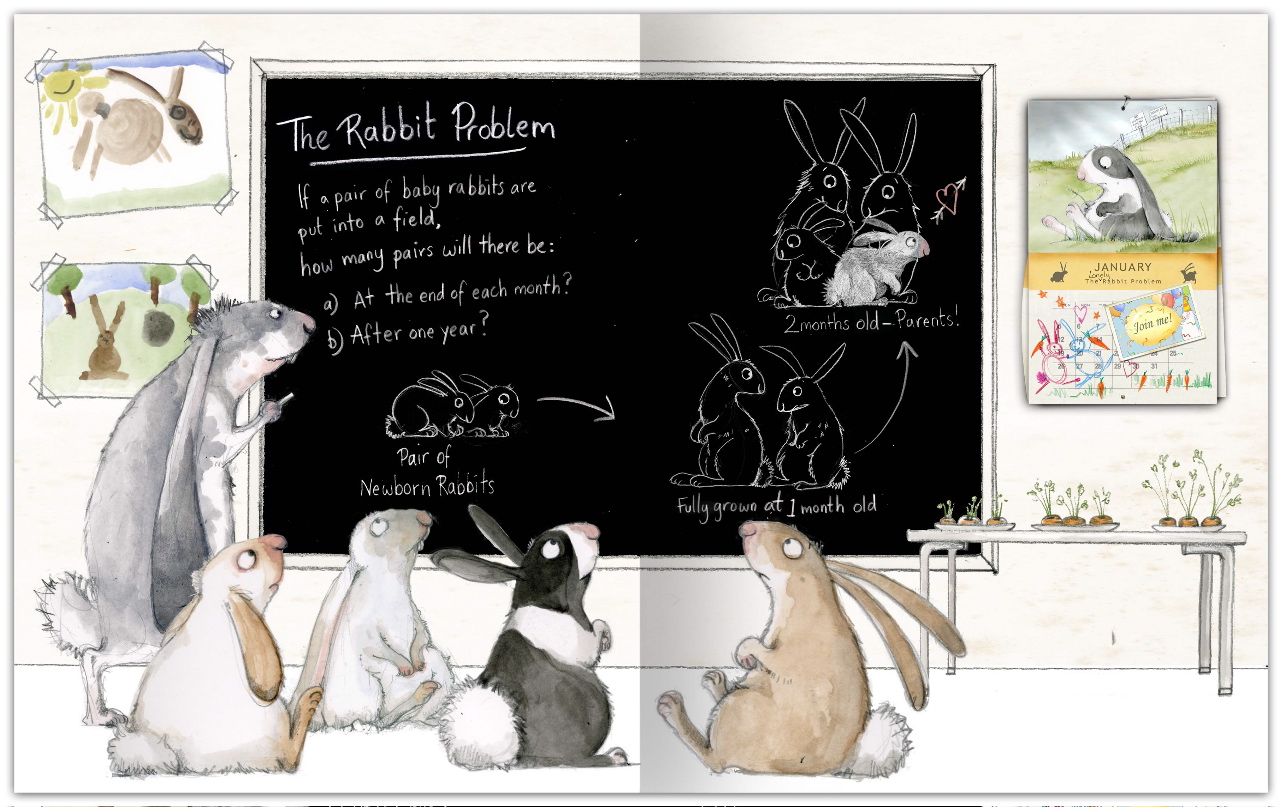 The Rabbit Problem
If a pair of baby rabbits are
put into a field,
how many pairs will there be:
a) At the end of each month?
b) After one year?
Pair of
Newborn Rabbits
Fully grown at 1 month old
2 months old – Parents!
JANUARY
Lonely
The Rabbit Problem
Join me!